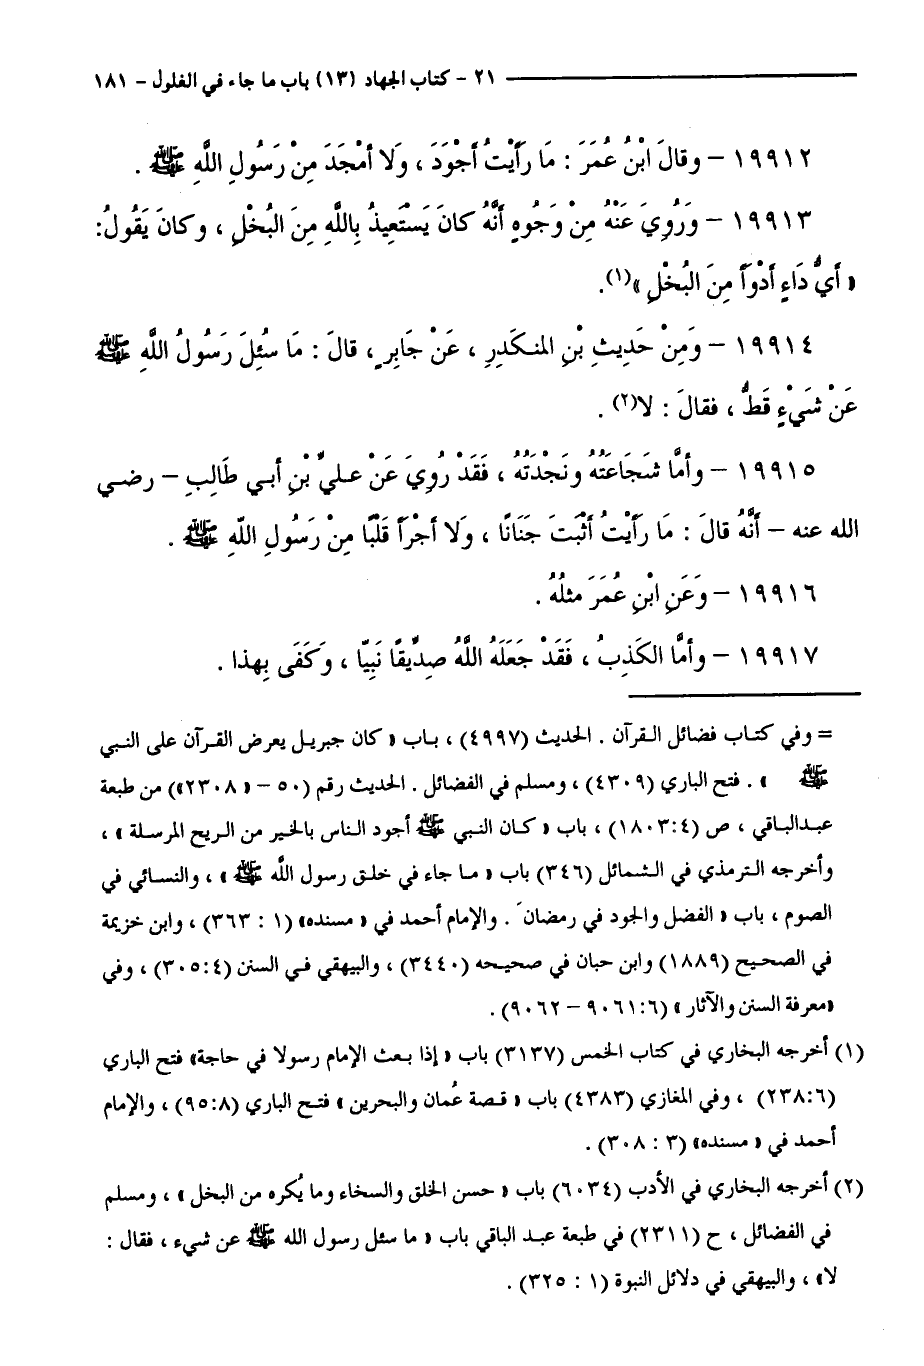 ٢١ - كتاب الجهاد (١٣) باب ما جاء في الغلول - ١٨١
١٩٩١٢ - وقالَ ابْنُ عُمَرَ : مَا رَأَيْتُ أَجْوَدَ ، وَلا أمْجَدَ مِنْ رَسُولِ اللَّهِ ﷺ .
١٩٩١٣ - وَرُوِيَ عَنْهُ مِنْ وَجُوهٍ أَنَّهُ كانَ يَسْتَعِيذُ بِاللَّهِ مِنَ البُخْلِ ، وكانَ يَقُولُ:
« أَيُّ دَاءٍ أَدْوَأَ مِنَ البُخْلِ »(١).
١٩٩١٤ - وَمِنْ حَدِيثِ بْنِ المنكَدِرِ ، عَنْ جَابِرٍ ، قالَ : مَا سُئِلَ رَسُولُ اللَّهِ ﷺ
عَنْ شَيْءٍ قَطُّ ، فقالَ : لا(٢) .
١٩٩١٥ - وأمَّا شَجَاعَتُهُ ونَجْدَتُهُ ، فَقَدْ رُوِيَ عَنْ عليِّ بْنِ أبي طَالِبٍ - رضي
الله عنه - أَنَّهُ قالَ : مَا رَأَيْتُ أَثْبَتَ جَنَانًا ، وَلا أجْرَأَ قَلْبًا مِنْ رَسُولِ اللَّهِ ﷺ .
١٩٩١٦ - وَعَنِ ابْنِ عُمَرَ مثلُهُ .
١٩٩١٧ - وأمَّا الكَذِبُ ، فَقَدْ جَعَلَهُ اللَّهُ صِدِّيقًا نَبِيّا ، وَكَفَى بِهذا .
= وفي كتاب فضائل القرآن . الحديث (٤٩٩٧) ، باب « كان جبريل يعرض القرآن على النبي
ﷺ » . فتح الباري (٤٣:٩) ، ومسلم في الفضائل . الحديث رقم (٥٠ - « ٢٣٠٨») من طبعة
عبدالباقي ، ص (١٨٠٣:٤) ، باب « كان النبي ﷺ أجود الناس بالخير من الريح المرسلة » ،
وأخرجه الترمذي في الشمائل (٣٤٦) باب « ما جاء في خلق رسول اللَّه ﷺ » ، والنسائي في
الصوم ، باب « الفضل والجود في رمضان َ . والإمام أحمد في « مسنده» (١ : ٣٦٣) ، وابن خزيمة
في الصحيح (١٨٨٩) وابن حبان في صحيحه (٣٤٤٠) ، والبيهقي في السنن (٣٠٥:٤) ، وفي
«معرفة السنن والآثار » (٩٠٦١:٦ - ٩٠٦٢) .
(١) أخرجه البخاري في كتاب الخمس (٣١٣٧) باب « إذا بعث الإمام رسولا في حاجة» فتح الباري
(٢٣٨:٦) ، وفي المغازي (٤٣٨٣) باب « قصة عُمان والبحرين » فتح الباري (٩٥:٨) ، والإمام
أحمد في « مسنده» (٣ : ٣٠٨) .
(٢) أخرجه البخاري في الأدب (٦٠٣٤) باب « حسن الخلق والسخاء وما يُكره من البخل » ، ومسلم
في الفضائل ، ح (٢٣١١) في طبعة عبد الباقي باب « ما سئل رسول الله ﷺ عن شيء ، فقال :
لا» ، والبيهقي في دلائل النبوة (١ : ٣٢٥) .